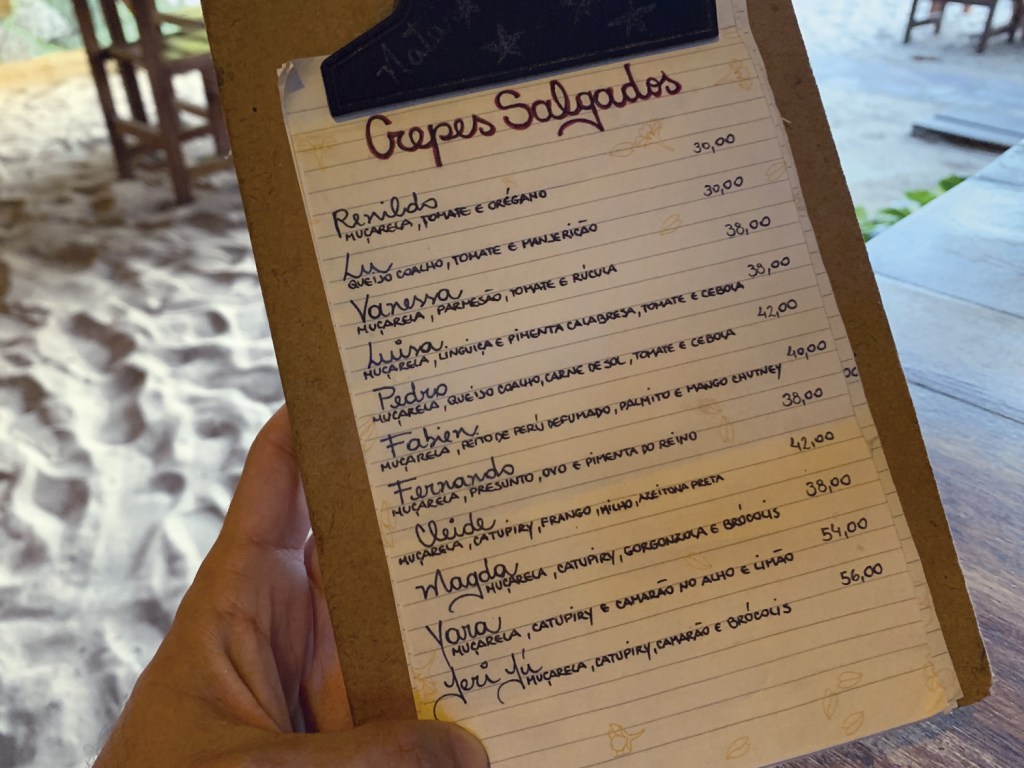 Nata
Crepes Salgados
Renildo 30,00
MUÇARELA, TOMATE E ORÉGANO
Lu 30,00
QUEIJO COALHO, TOMATE E MANJERICÃO
Vanessa 38,00
MUÇARELA, PARMESÃO, TOMATE E RÚCULA
Luisa 38,00
MUÇARELA, LINGUIÇA E PIMENTA CALABRESA, TOMATE E CEBOLA
Pedro 42,00
MUÇARELA, QUEIJO COALHO, CARNE DE SOL, TOMATE E CEBOLA
Fabien 40,00
MUÇARELA, PEITO DE PERÚ DEFUMADO, PALMITO E MANGO CHUTNEY
Fernando 38,00
MUÇARELA, PRESUNTO, OVO E PIMENTA DO REINO
Cleide 42,00
MUÇARELA, CATUPIRY, FRANGO, MILHO, AZEITONA PRETA
Magda 38,00
MUÇARELA, CATUPIRY, GORGONZOLA E BRÓCOLIS
Yara 54,00
MUÇARELA, CATUPIRY E CAMARÃO NO ALHO E LIMÃO
Jeri Jú 56,00
MUÇARELA, CATUPIRY, CAMARÃO E BRÓCOLIS